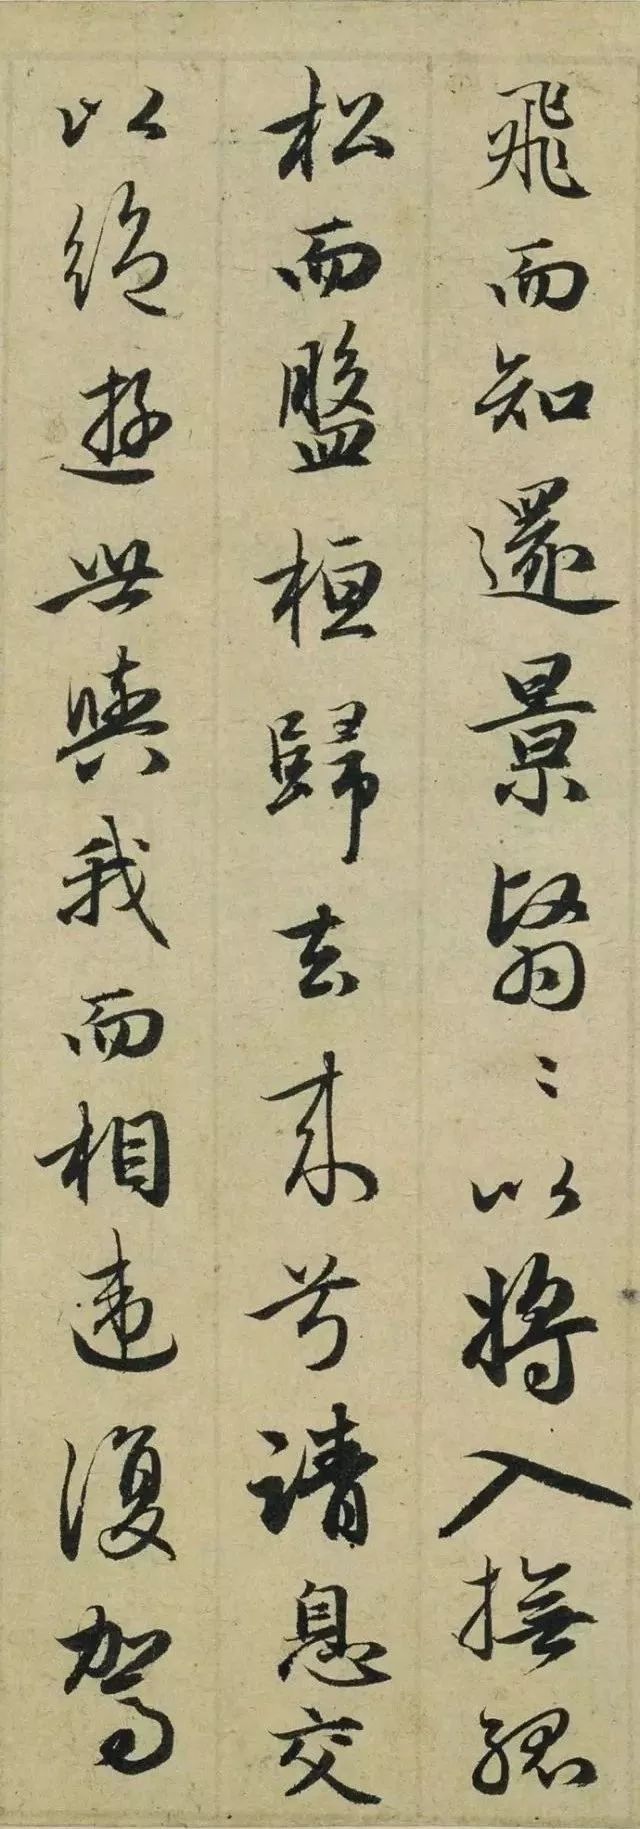 飛而知還景翳〻以將入撫孤
松而盤桓歸去来兮請息交
以絶遊世與我而相違復駕